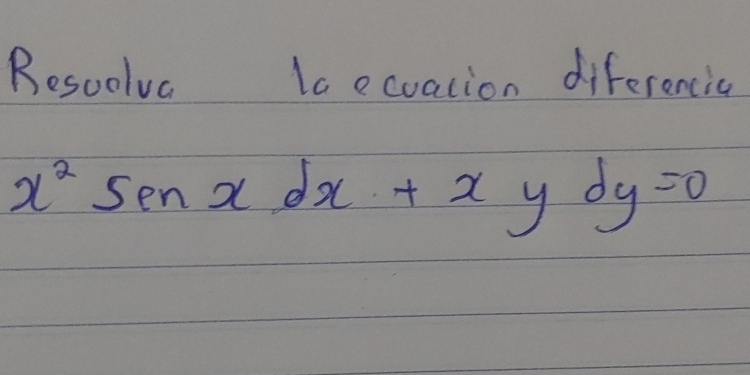 Resuelva la ecuacion diferencia
x² sen x dx + x y dy = 0